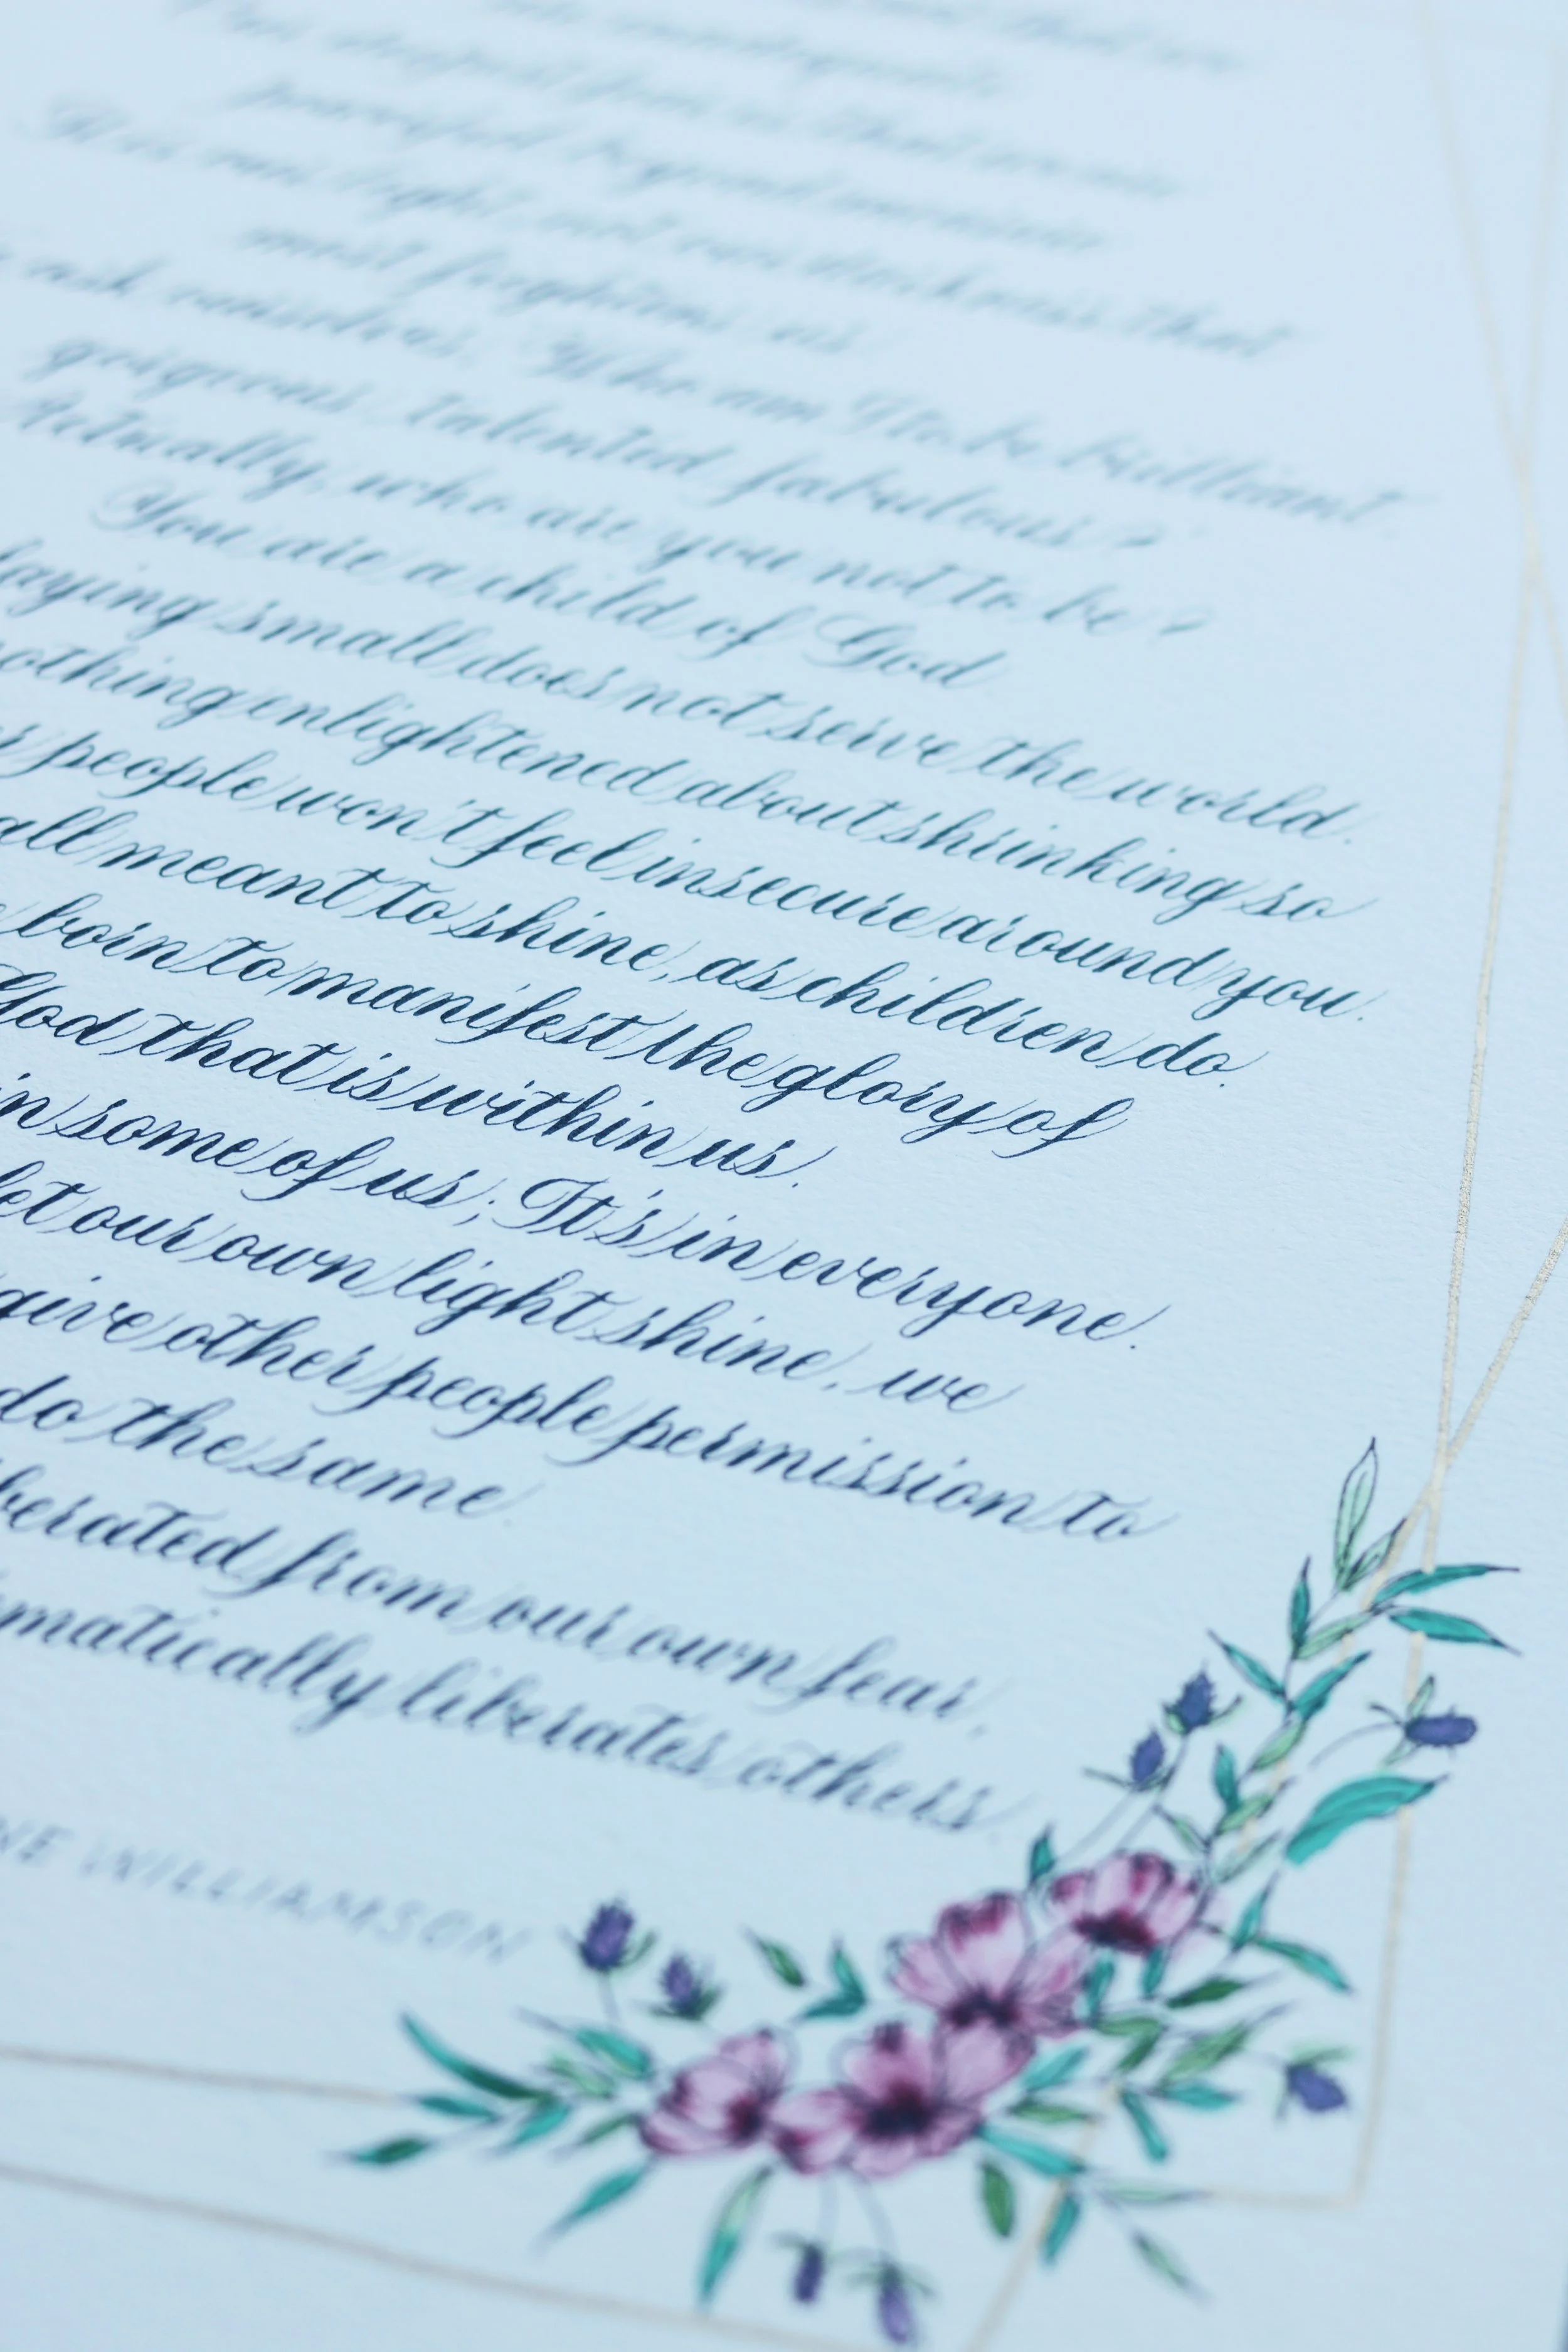 powerful beyond measure
It is our light, not our darkness that
most frightens us
ask ourselves, Who am I to be brilliant,
gorgeous, talented, fabulous?
Actually, who are you not to be?
You are a child of God
laying small does not serve the world.
nothing enlightened about shrinking so
people won't feel insecure around you.
all meant to shine, as children do.
born to manifest the glory of
God that is within us.
in some of us; It's in everyone.
let our own light shine, we
give other people permission to
do the same
berated from our own fear,
matically liberates others
NE WILLIAMSON